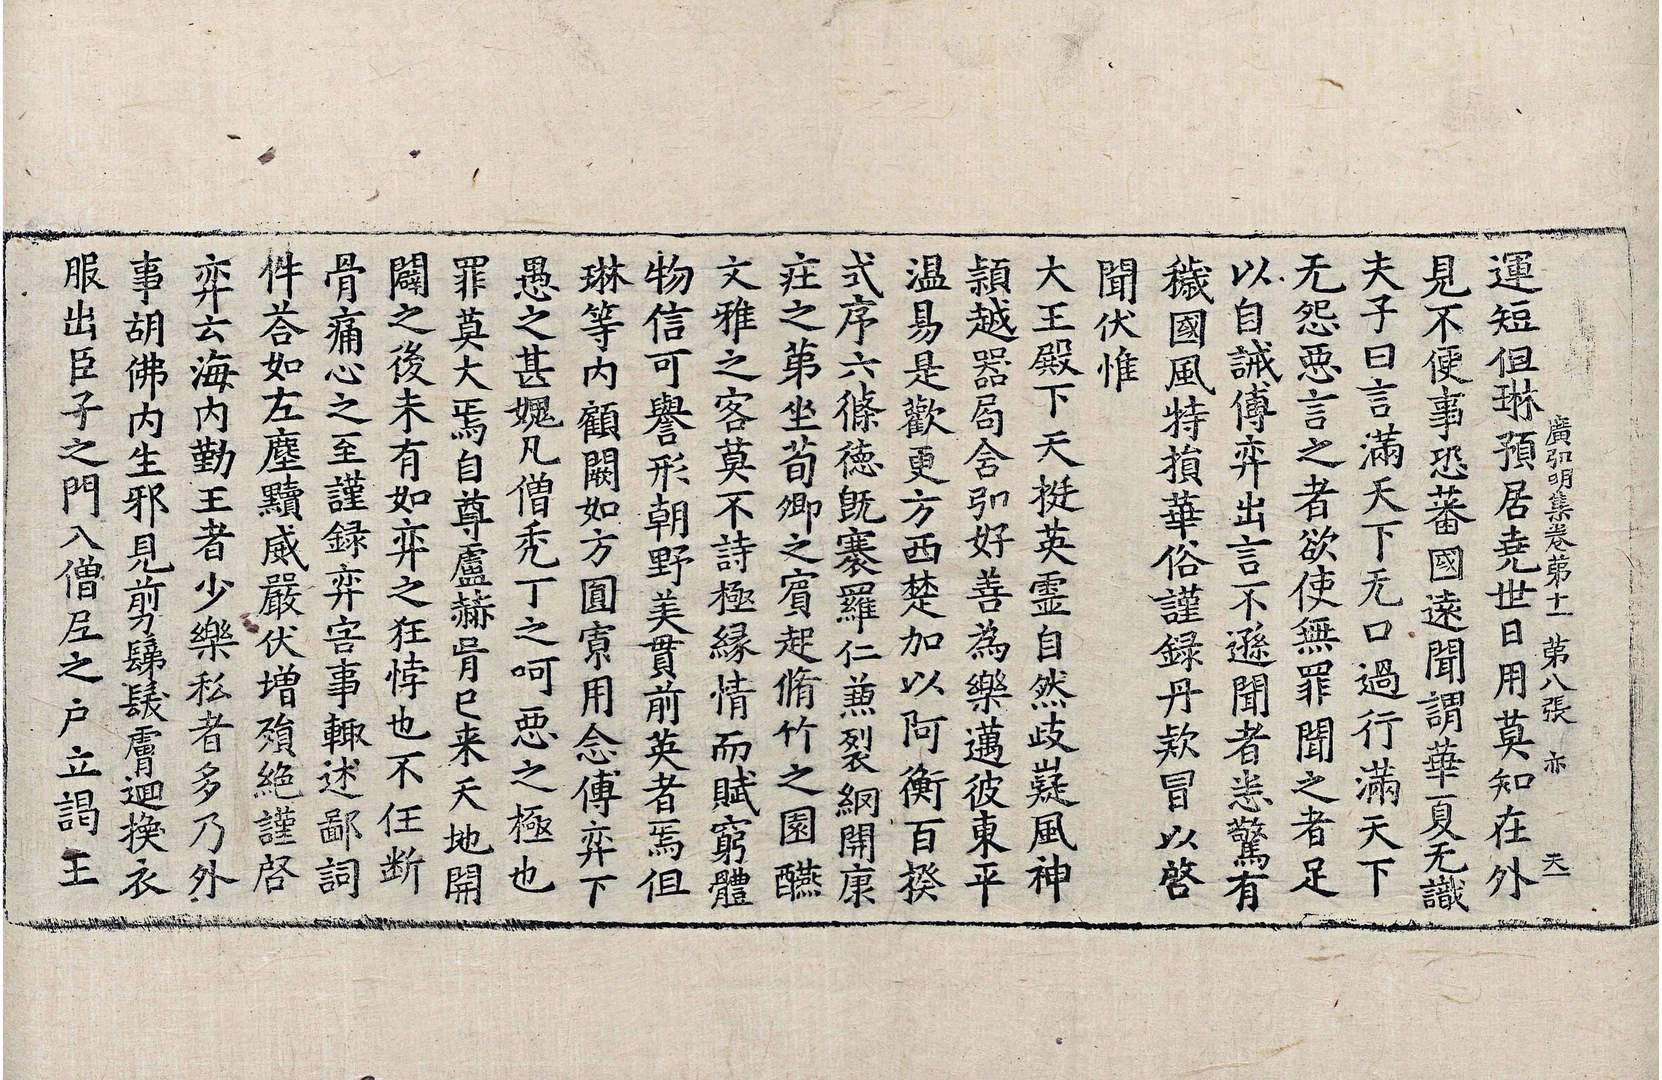 廣弘明集卷第十一 第八張 亦
運短但琳預居堯世日用莫知在外
見不便事恐蕃國遠聞謂華夏无識
夫子曰言滿天下无口過行滿天下
无怨惡言之者欲使無罪聞之者足
以自誡傅弈出言不遜聞者悉驚有
穢國風特損華俗謹録丹欵冒以啓
聞伏惟
大王殿下天挺英靈自然歧嶷風神
頴越器局含弘好善為樂邁彼東平
温易是歡更方西楚加以阿衡百揆
式序六條德旣褰羅仁兼裂綱開康
莊之第坐荀卿之賓起脩竹之園醼
文雅之客莫不詩極縁情而賦窮體
物信可譽形朝野美貫前英者焉但
琳等內顧闕如方圓寡用念傅弈下
愚之甚媿凡僧禿丁之呵惡之極也
罪莫大焉自尊盧赫胥已来天地開
闢之後未有如弈之狂悖也不任断
骨痛心之至謹録弈害事輙述鄙詞
件荅如左塵黷威嚴伏增殞絶謹啓
弈云海內勤王者少樂私者多乃外
事胡佛內生邪見前剪髮膚迴換衣
服出臣子之門入僧尼之戶立謁王